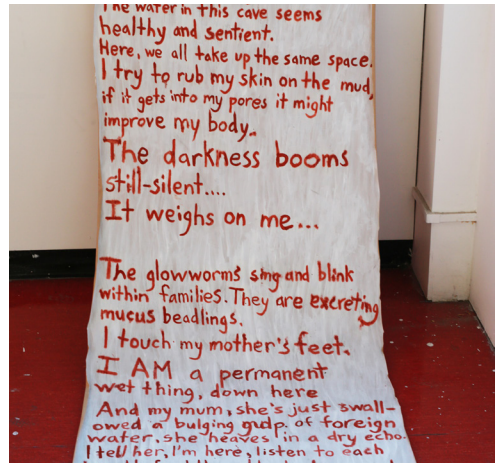 The water in this cave seems
healthy and sentient.
Here, we all take up the same space.
I try to rub my skin on the mud,
if it gets into my pores it might
improve my body.
The darkness booms
still-silent....
It weighs on me...
The glowworms sing and blink
within families. They are excreting
mucus beadlings.
I touch my mother's feet.
I AM a permanent
wet thing, down here
And my mum, she's just swall-
owed a bulging gulp of foreign
water, she heaves in a dry echo.
I tell her, I'm here, listen to each